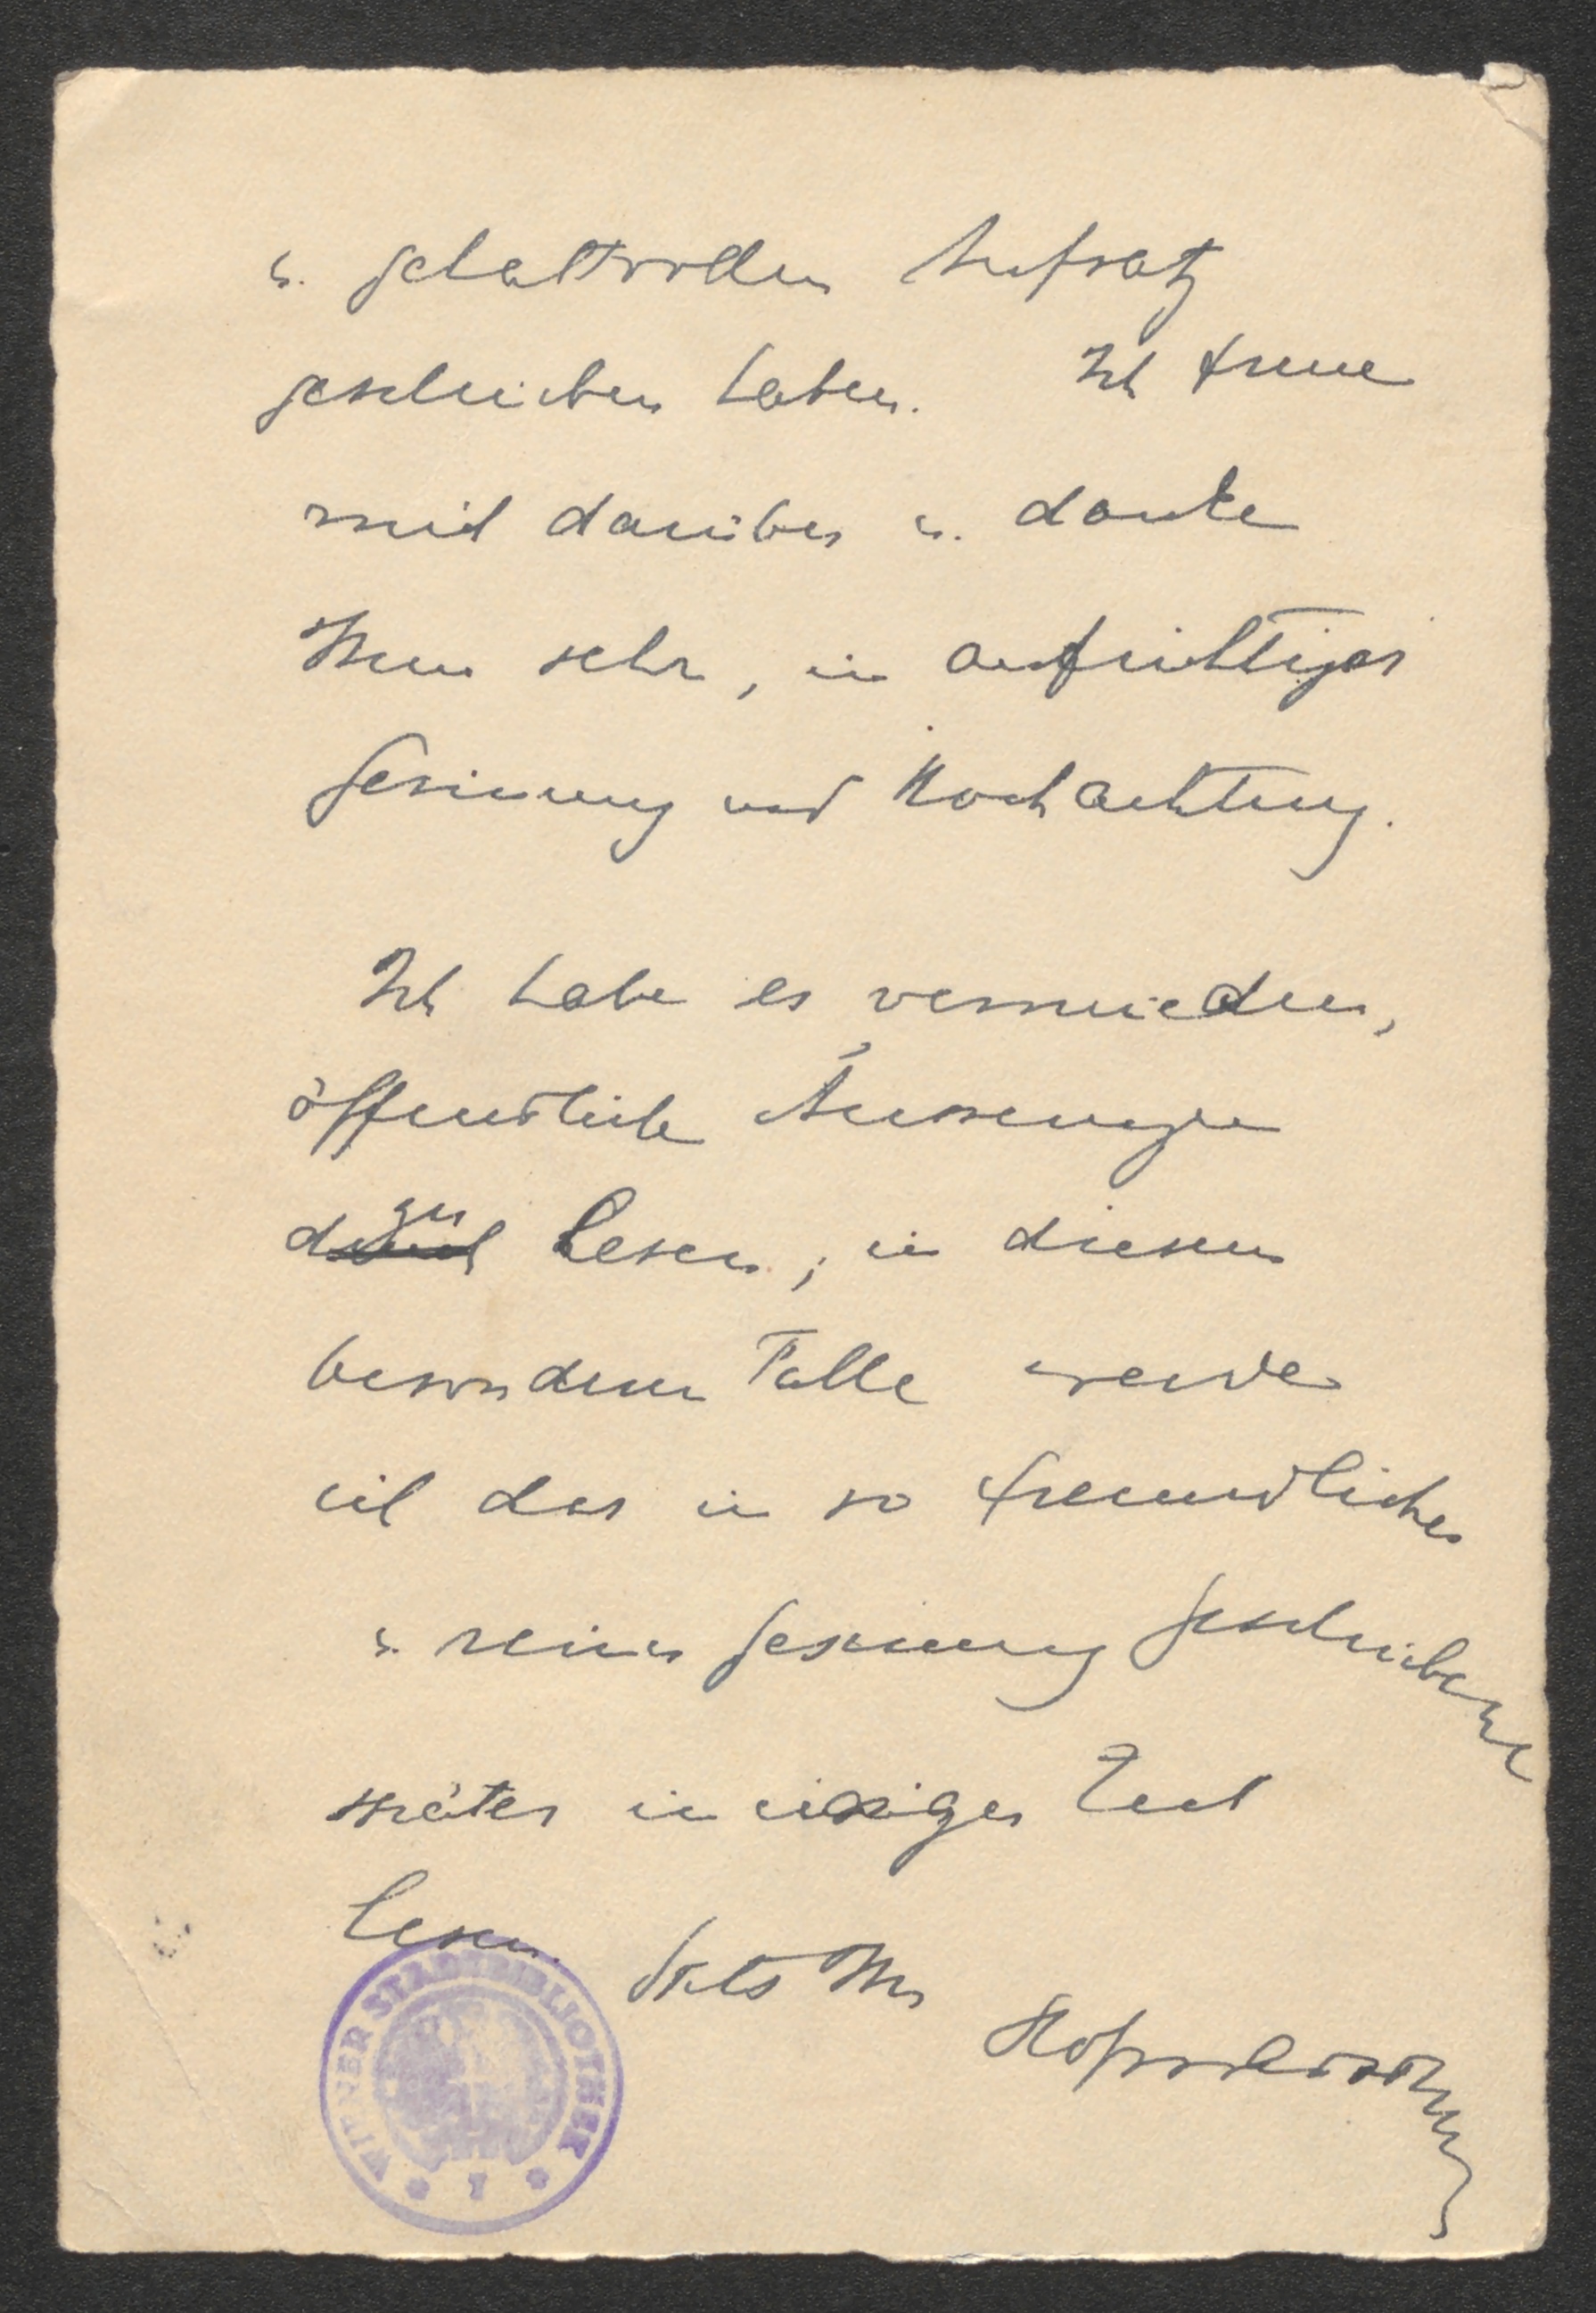 u. gehaltvollen Aufsatz
geschrieben haben. Ich freue
mich darüber u. danke
Ihnen sehr, in aufrichtiger
Gesinnung und Hochachtung.
Ich habe es vermieden,
öffentliche Äusserungen
zu
lesen; in diesem
besondern Falle werde
ich das in so freundlicher
u. reiner Gesinnung Geschriebene
später in einiger Zeit
lesen. Stets Ihr
Hofmannsthal
WIENER STADTBIBLIOTHEK